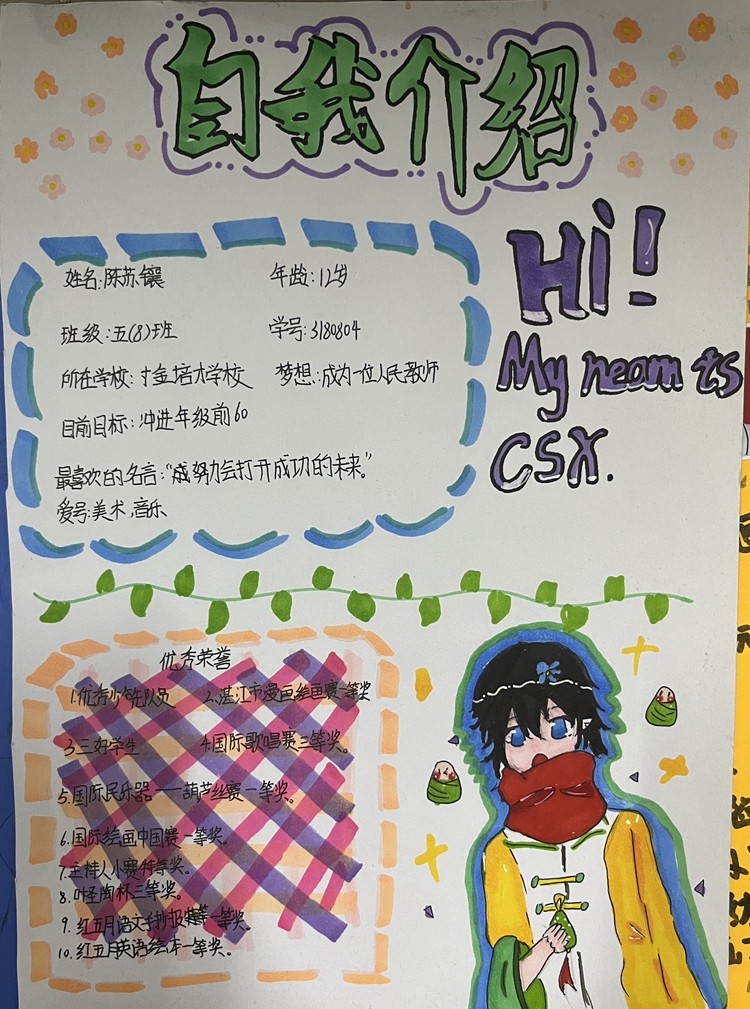 自我介绍
Hi!
My neam ts
CSX.
姓名:陈苏镶 年龄:12岁
班级:五(8)班 学号:3180804
所在学校:寸金培才学校 梦想:成为一位人民教师
目前目标:冲进年级前60
最喜欢的名言:“努力会打开成功的未来。”
爱号:美术,音乐
优秀荣誉
1.优秀少先队员 2.湛江市漫画绘画赛一等奖
3.三好学生 4.国际歌唱赛三等奖。
5.国际民乐器——葫芦丝赛一等奖。
6.国际绘画中国赛一等奖。
7.主持人小赛特等奖。
8.叶圣陶杯三等奖。
9.红五月语文手抄报一等奖。
10.红五月英语绘本一等奖。